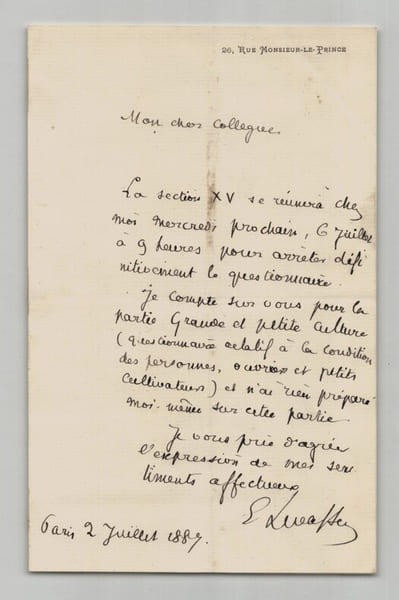 26, Rue Monsieur-le-Prince
Mon cher collègue
La section XV se réunira chez
moi mercredi prochain, 6 juillet
à 9 heures pour arrêter défi
nitivement le questionnaire.
Je compte sur vous pour la
partie Grande et petite culture
(questionnaire relatif à la condition
des personnes, ouvriers et petits
cultivateurs) et n'ai rien préparé
moi-même sur cette partie
Je vous prie d'agréer
l'expression de mes sen
timents affectueux
E Levasseur
Paris 2 Juillet 1887.